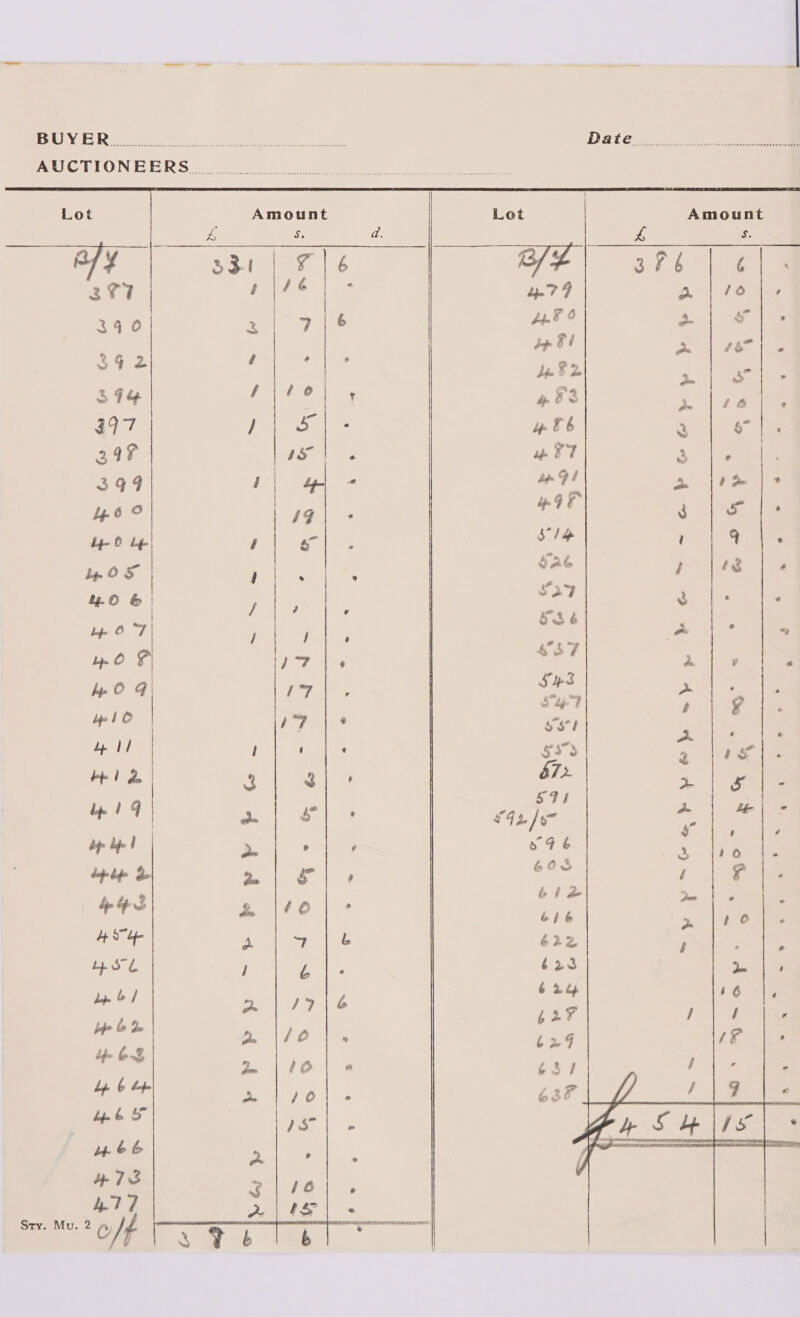 BUYER Date
AUCTIONEERS
Lot Amount Lot Amount
£ s. d. £ s.
B/F 331 8 6
387 1 16 -
390 3 7 6
392 1 . .
394 1 10 .
397 1 5 -
398 15 .
399 1 4 -
400 19 -
404 1 5 -
405 1 . .
406 1 . .
407 1 1 .
408 17 .
409 17 .
410 17 .
411 1 . .
412 3 3 .
419 2 5 .
441 2 . .
442 2 5 .
443 2 10 .
454 2 7 6
456 1 6 -
461 2 17 6
462 2 10 .
463 2 10 -
464 2 10 -
465 15 -
466 2 . .
473 3 10 .
477 2 15 .
Sty. Mu. 2 c/f 386 6 .
B/F 386 6 .
479 2 10 .
480 2 5 .
481 2 15 -
482 2 5 -
483 2 10 .
486 3 5 .
487 3 . .
491 2 12 .
498 3 5 .
514 1 9 .
526 1 13 .
527 3 . .
536 2 . .
537 2 . .
543 2 . .
547 1 8 .
551 2 . .
553 2 15 -
572 2 5 -
591 2 4 -
592/5 5 . .
596 3 10 -
603 1 8 .
612 2 . .
616 2 10 .
622 1 . .
623 2 .
624 16 .
628 1 1 .
629 18 .
631 1 - -
638 1 9 -
£454 15 .